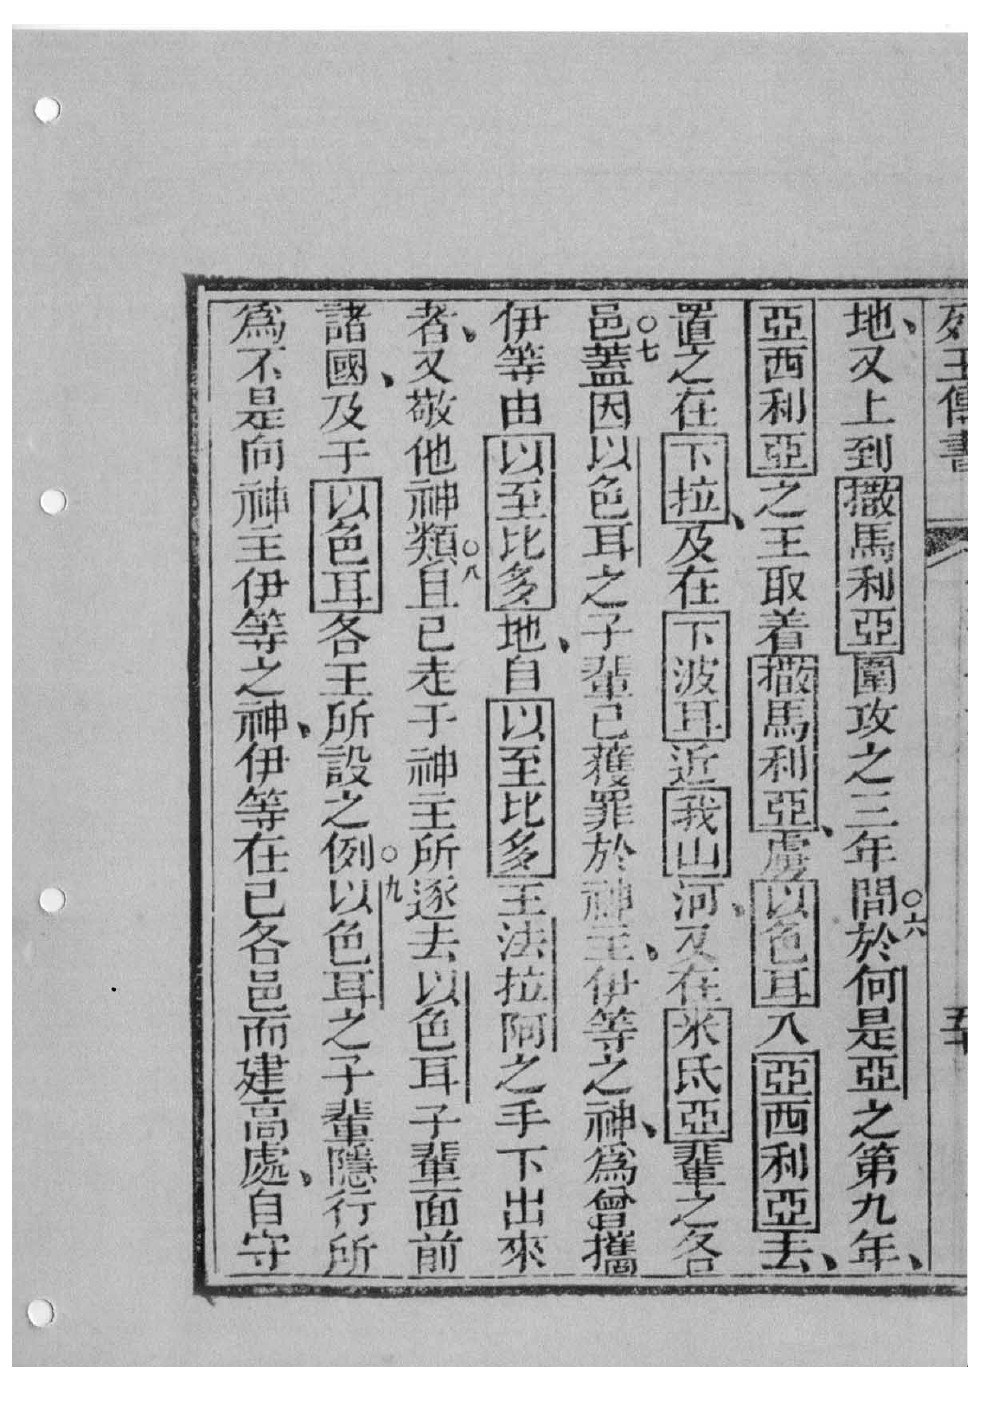 列王傳書
五十
地、又上到撒馬利亞圍攻之三年間○六於何是亞之第九年、
亞西利亞之王取着撒馬利亞、虜以色耳八亞西利亞去、
置之在下拉、及在下波耳近我山河、及在米氐亞輩之各
邑○七蓋因以色耳之子輩已獲罪於神主、伊等之神、爲曾攜
伊等由以至比多地、自以至比多王法拉阿之手下出來
者、又敬他神類○八且已走于神主所逐去以色耳子輩面前
諸國、及于以色耳各王所設之例○九以色耳之子輩隱行所
爲不是向神主伊等之神、伊等在已各邑而建高處、自守